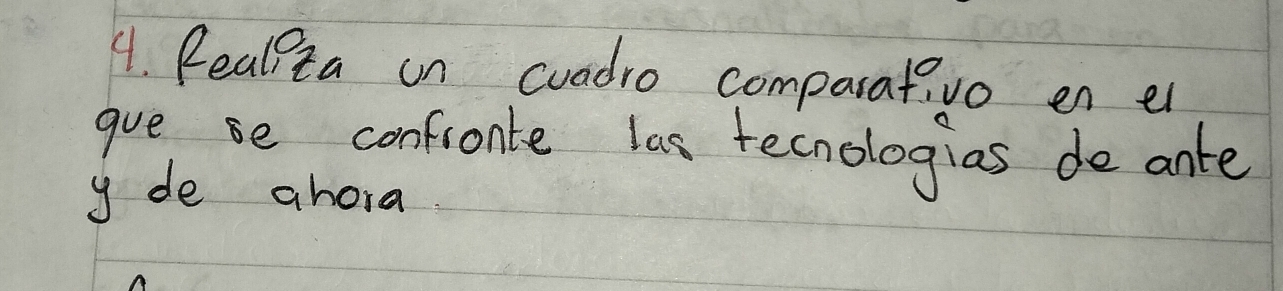 4. Realiza un cuadro comparativo en el
que se confronte las tecnologias de ante
y de ahora.